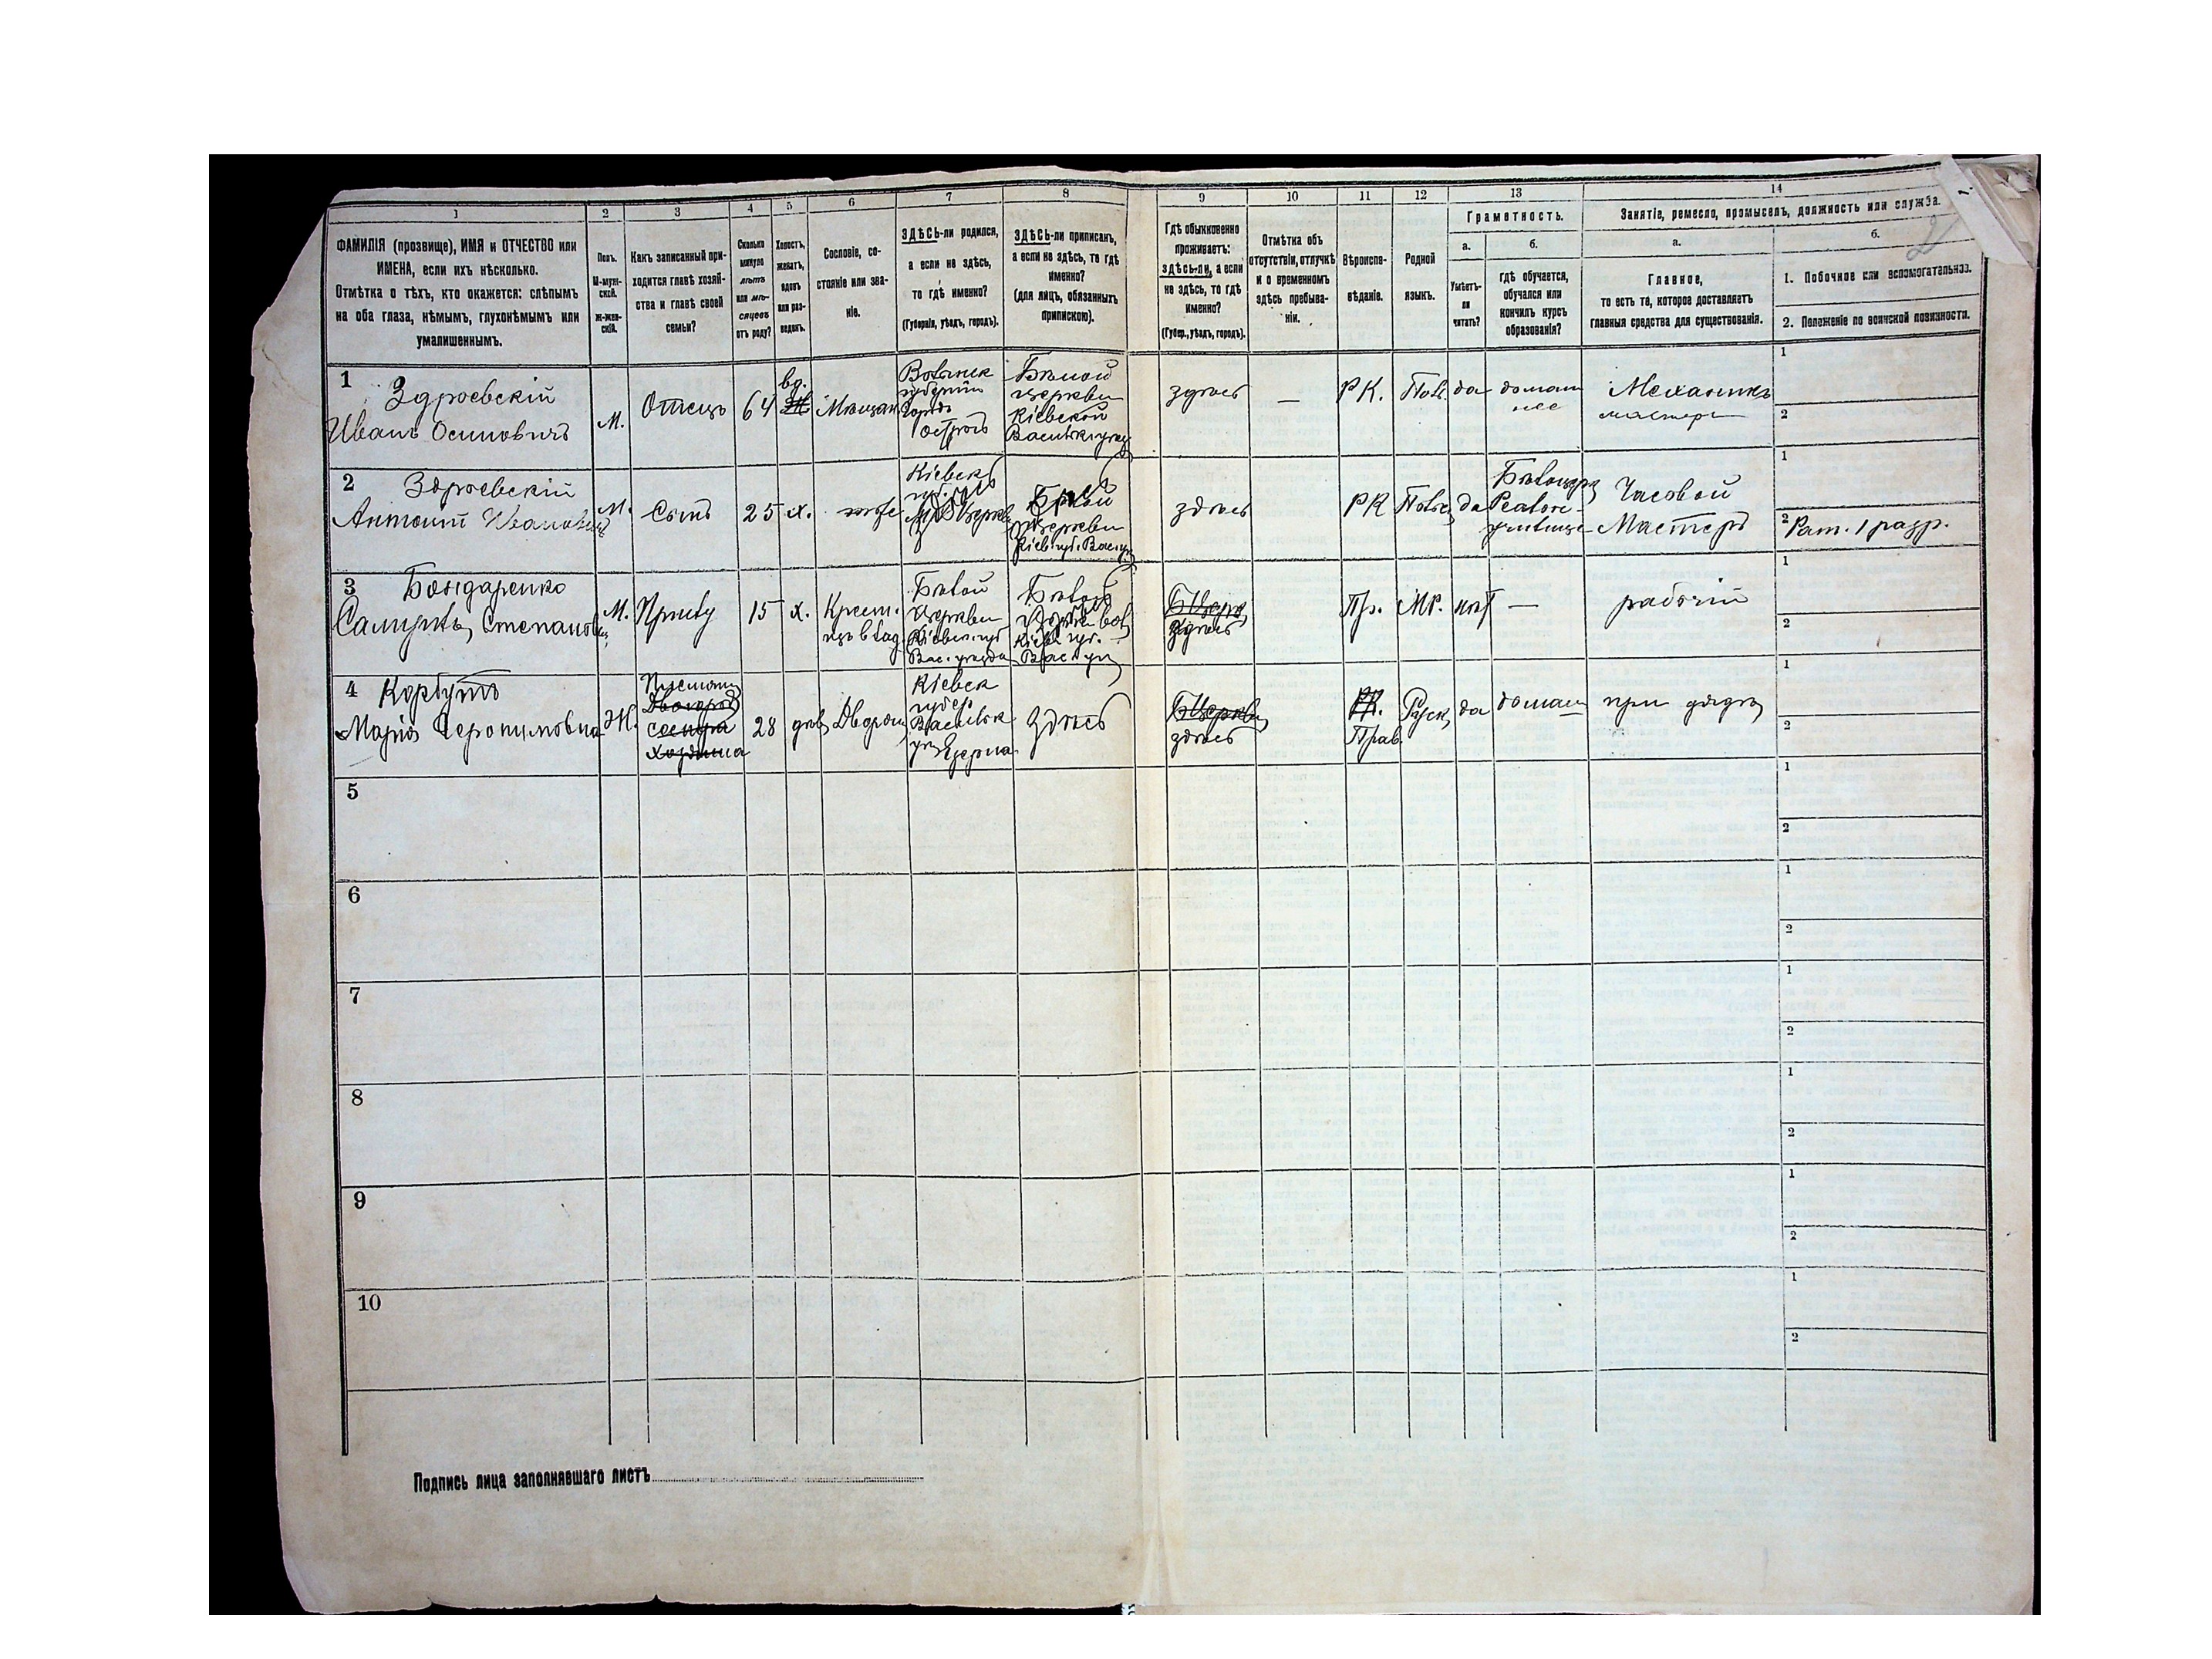 1 2 3 4 5 6 7 8 9 10 11 12 13 14
ФАМИЛІЯ (прозвище), ИМЯ и ОТЧЕСТВО или
ИМЕНА, если ихъ нѣсколько.
Отмѣтка о тѣхъ, кто окажется: слѣпымъ
на оба глаза, нѣмымъ, глухонѣмымъ или
умалишеннымъ.
Полъ.
М-муж-
ской.
Ж-жен-
скій.
Какъ записанный при-
ходится главѣ хозяй-
ства и главѣ своей
семьи?
Сколько
минуло
лѣтъ
или мѣ-
сяцевъ
отъ роду?
Холостъ,
женатъ,
вдовъ
или раз-
веденъ.
Сословіе, со-
стояніе или зва-
ніе.
ЗДѢСЬ-ли родился,
а если не здѣсь,
то гдѣ именно?
(Губернія, уѣздъ, городъ).
ЗДѢСЬ-ли приписанъ,
а если не здѣсь, то гдѣ
именно?
(для лицъ, обязанныхъ
припискою).
Гдѣ обыкновенно
проживаетъ:
здѣсь-ли, а если
не здѣсь, то гдѣ
именно?
(Губер., уѣздъ, городъ).
Отмѣтка объ
отсутствіи, отлучкѣ
и о временномъ
здѣсь пребыва-
ніи.
Вѣроиспо-
вѣданіе.
Родной
языкъ.
Грамотность.
а.
Умѣетъ-
ли
читать?
б.
гдѣ обучается,
обучался или
кончилъ курсъ
образованія?
Занятіе, ремесло, промыселъ, должность или служба.
2
а.
Главное,
то есть то, которое доставляетъ
главныя средства для существованія.
б.
1. Побочное или вспомогательное.
2. Положеніе по воинской повинности.
1
Здроевскій
Иванъ Осиповичъ
М.
Отецъ
64
вд.
Мѣщан
Волынск
губерніи
городъ
Острогъ
Бѣлой
церкви
Кіевской
здѣсь
—
РК.
Поль.
да
домаш
нее
Механикъ
мастеръ
1
2
2
Здроевскій
Антонъ Иванович
М.
Сынъ
25
х.
тоже
Кіевск
здѣсь
РК
Польс
да
Бѣлоцерк
Реальн
училище
Часовой
Мастеръ
1
2 Рат. 1 разр.
3
Бондаренко
Степанов
М.
15
х.
Крест.
Бѣлой
Церкви
Бѣлой
здѣсь
Пр.
МР.
нѣт
—
рабочій
1
2
4
Корбутъ
Марія Іеронимовна
Ж.
сестра
28
дѣв
Дворян
Кіевск
губер
Васильк
здѣсь
БЦеркви
здѣсь
РК.
Прав.
Русск
да
домаш
при дядѣ
1
2
5
1
2
6
1
2
7
1
2
8
1
2
9
1
2
10
1
2
Подпись лица заполнявшаго листъ